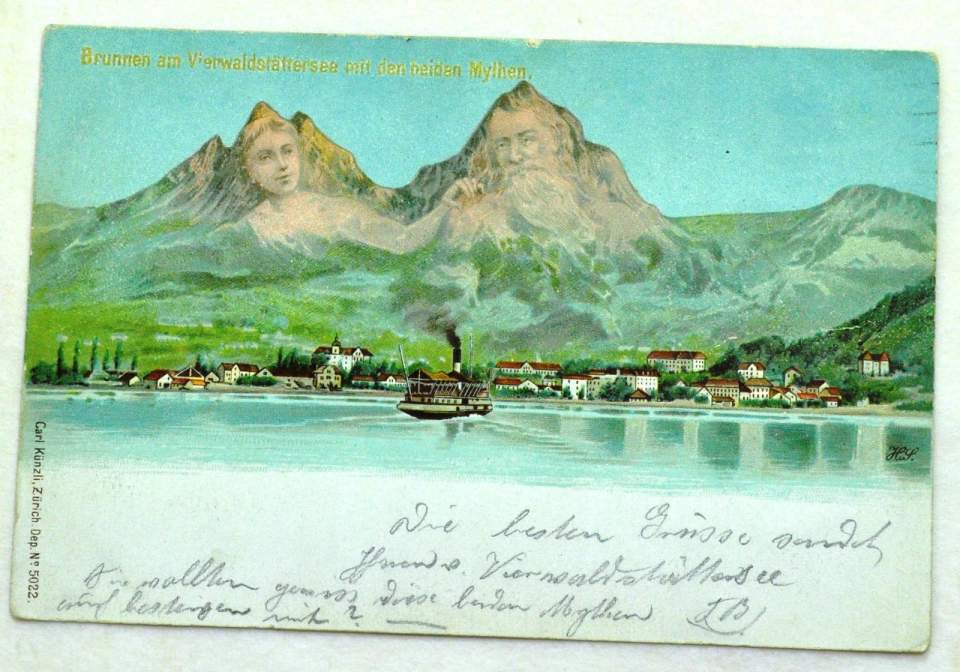 Brunnen am Vierwaldstättersee mit den beiden Mythen.
H.S.
Carl Künzli, Zürich. Dep. Nº 5022.
Die besten Grüsse sendet
Vierwaldstättersee
Sie wollten gewiss diese beiden Mythen
auf besteigen mit? —